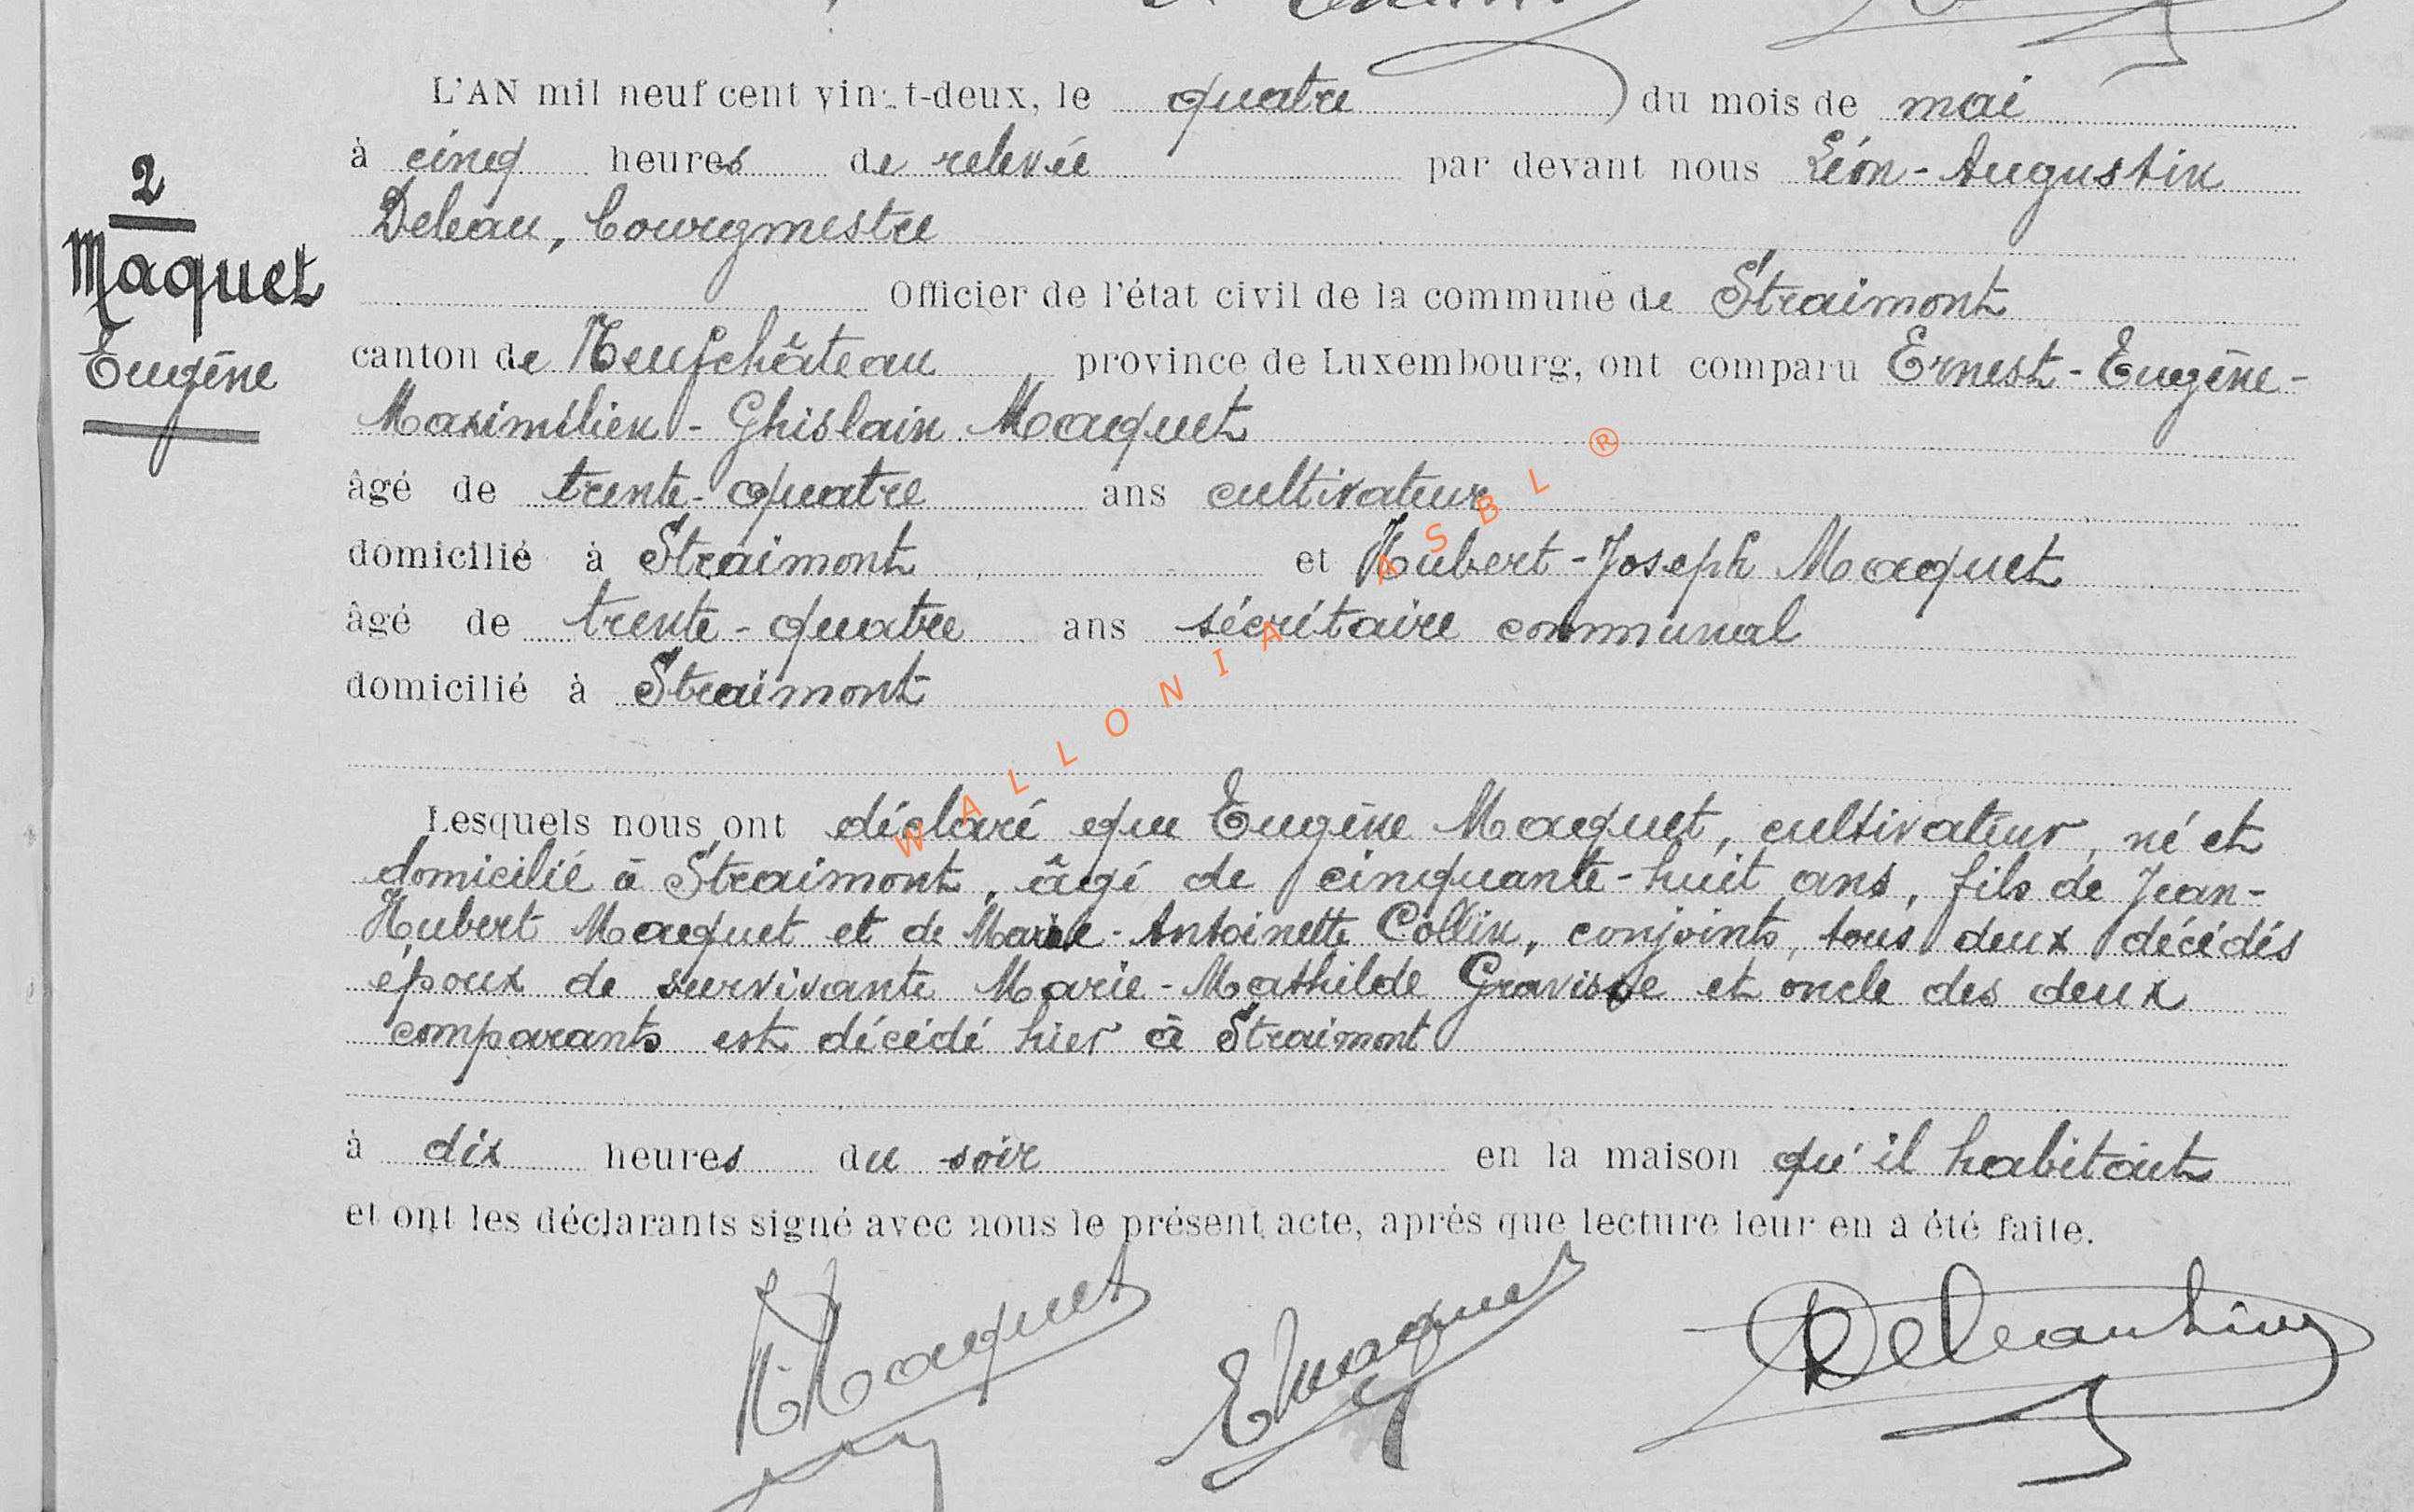 L'AN mil neuf cent vingt-deux, le quatre du mois de mai
à cinq heures de relevée par devant nous Léon-Augustin
Deleau, bourgmestre
2
Maquet
Eugène
Officier de l'état civil de la commune de Straimont
canton de Neufchâteau province de Luxembourg, ont comparu Ernest-Eugène-
Maximilien-Ghislain Maquet
âgé de trente-quatre ans cultivateur
domicilié à Straimont et Hubert-Joseph Maquet
âgé de trente-quatre ans sécrétaire communal
domicilié à Straimont
WALLONIA ASBL ®
Lesquels nous ont déclaré que Eugène Maquet, cultivateur, né et
domicilié à Straimont, âgé de cinquante-huit ans, fils de Jean-
Hubert Maquet et de Marie-Antoinette Collin, conjoints, tous deux décédés
époux de survivante Marie-Mathilde Gravisse et oncle des deux
comparants est décédé hier à Straimont
à dix heures du soir en la maison qu'il habitait
et ont les déclarants signé avec nous le présent acte, après que lecture leur en a été faite.
H. Maquet E Maquet